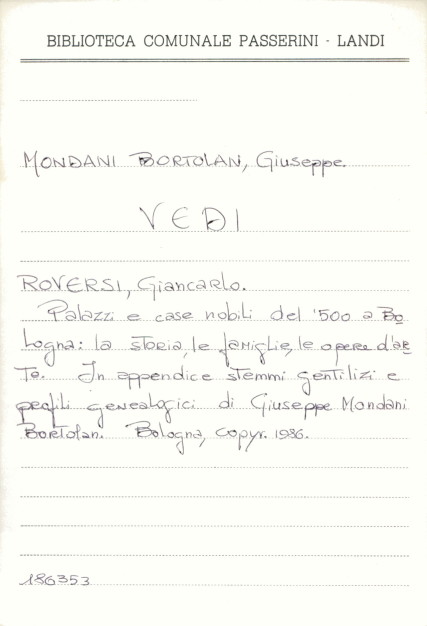 BIBLIOTECA COMUNALE PASSERINI - LANDI
MONDANI BORTOLAN, Giuseppe.
VEDI
ROVERSI, Giancarlo.
Palazzi e case nobili del '500 a Bo
logna: la storia, le famiglie, le opere d'ar
te. In appendice stemmi gentilizi e
profili genealogici di Giuseppe Mondani
Bortolan. Bologna, copyr. 1986.
186353